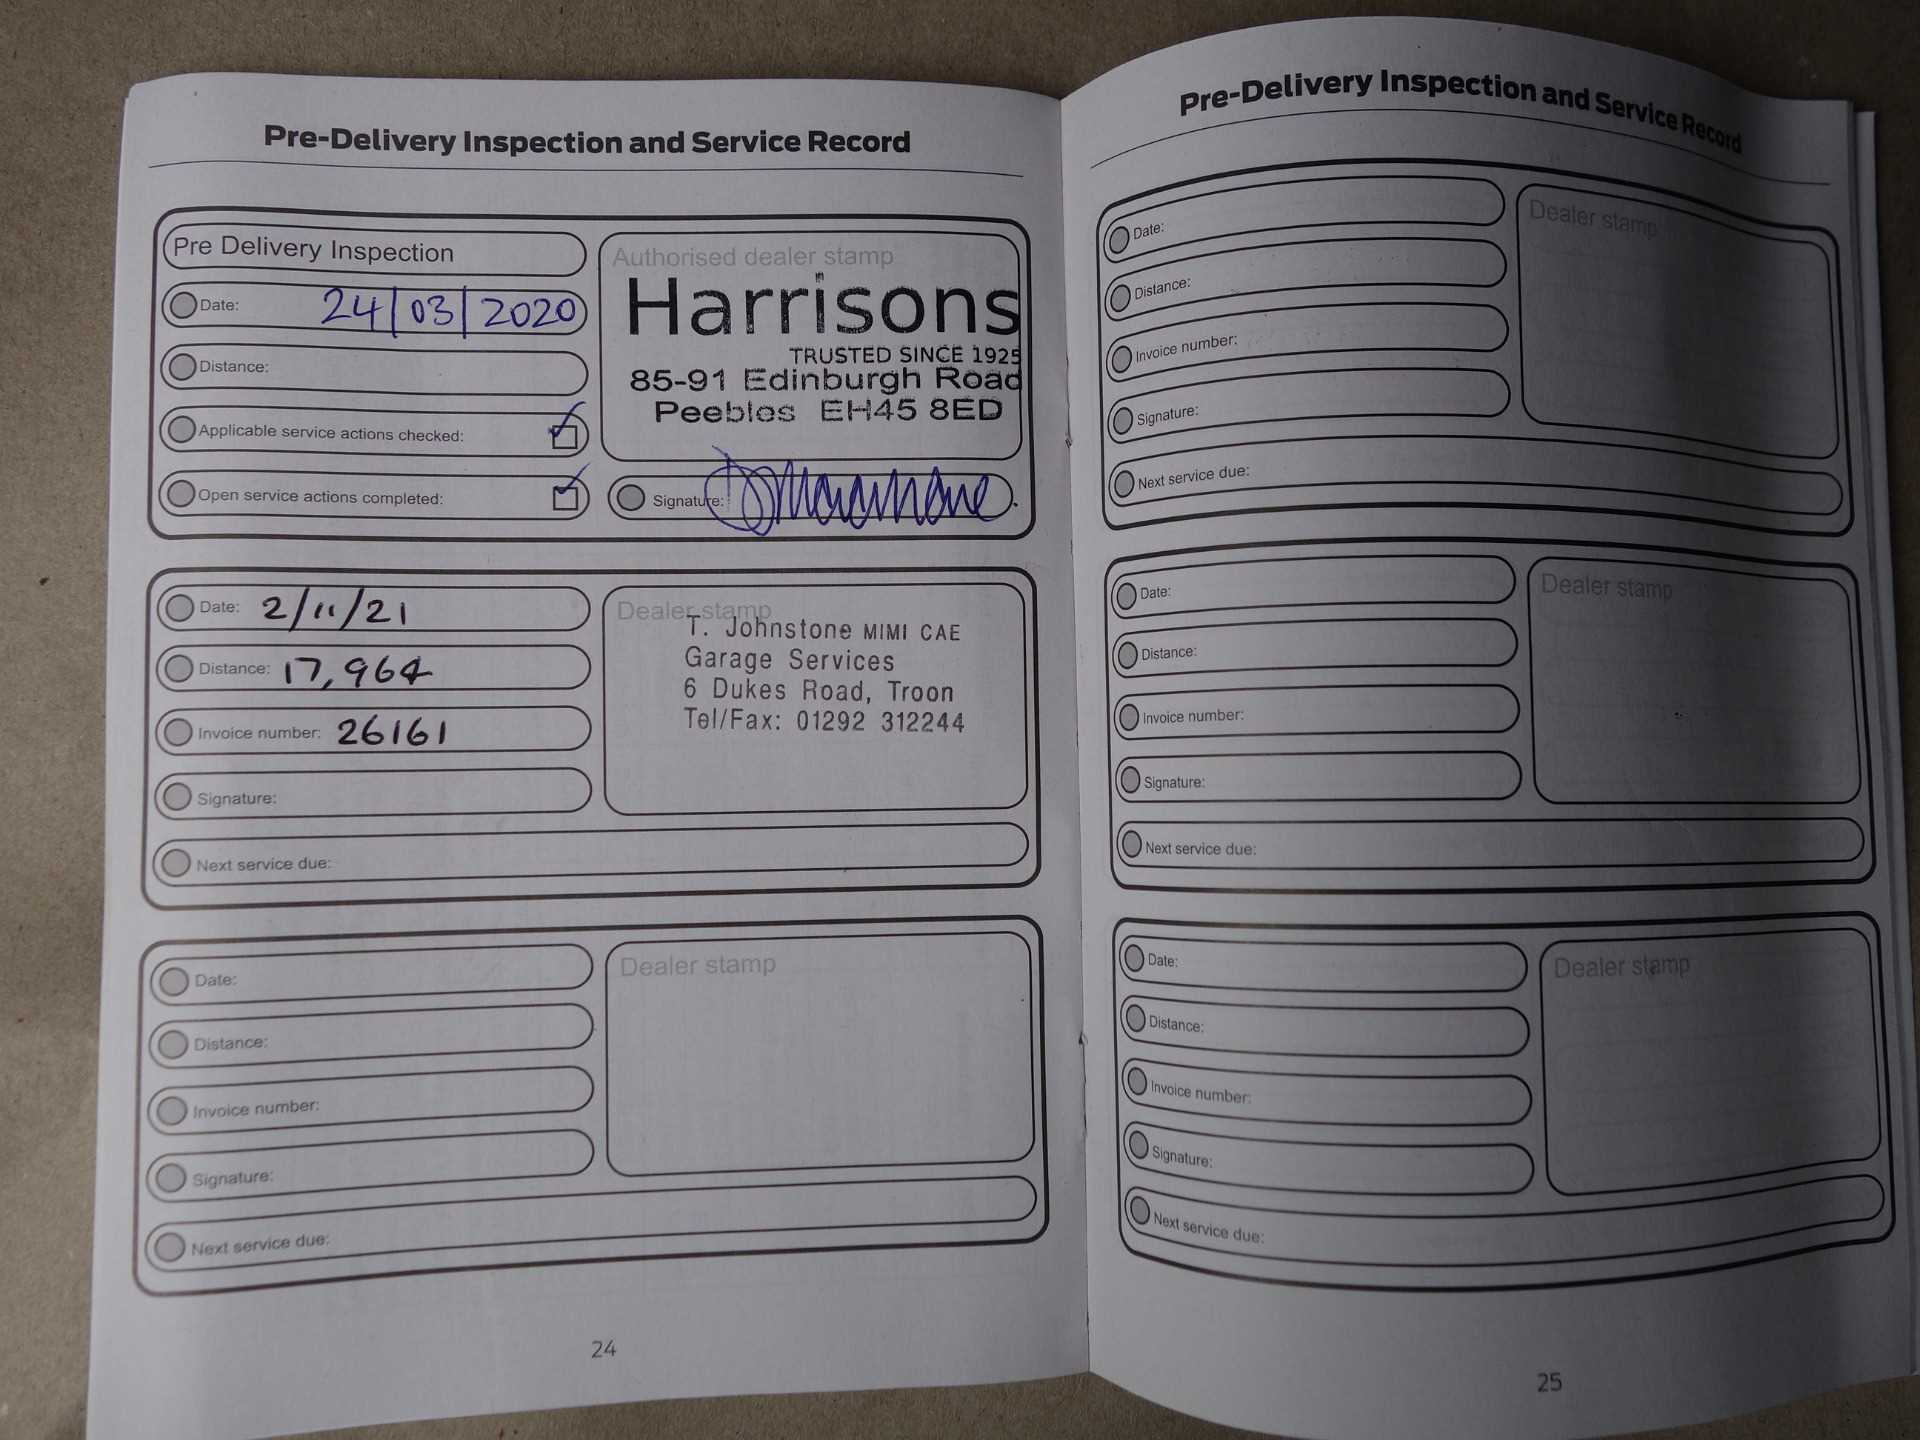 Pre-Delivery Inspection and Service Record
Pre Delivery Inspection
Date: 24/03/2020
Distance:
Applicable service actions checked:
Open service actions completed:
Authorised dealer stamp
Harrisons
TRUSTED SINCE 1925
85-91 Edinburgh Road
Peebles EH45 8ED
Signature:
Date: 2/11/21
Distance: 17,964
Invoice number: 26161
Signature:
Next service due:
Dealer stamp
T. Johnstone MIMI CAE
Garage Services
6 Dukes Road, Troon
Tel/Fax: 01292 312244
Date:
Distance:
Invoice number:
Signature:
Next service due:
Dealer stamp
24
Pre-Delivery Inspection and Service Record
Date:
Distance:
Invoice number:
Signature:
Next service due:
Dealer stamp
Date:
Distance:
Invoice number:
Signature:
Next service due:
Dealer stamp
Date:
Distance:
Invoice number:
Signature:
Next service due:
Dealer stamp
25